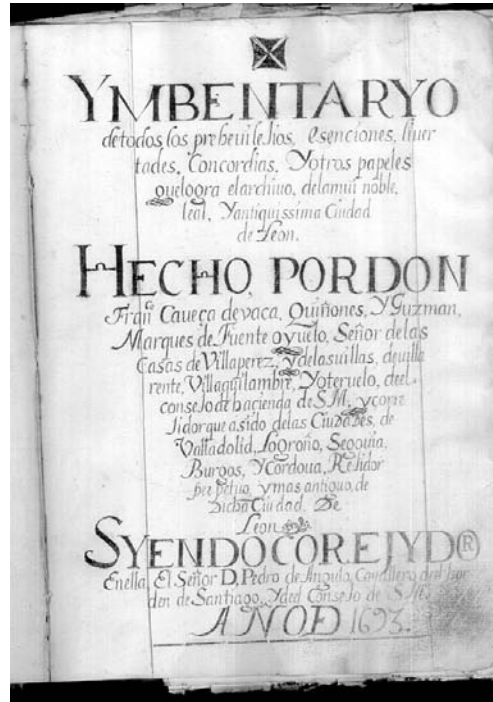 YMBENTARYO
de todos los prebeuilejios, esenciones, liuer
tades, Concordias, Y otros papeles
que logra el archiuo, de la mui noble,
leal, Y antiquissima Ciudad
de Leon.
HECHO, POR DON
Fran.co Caueça de vaca, Quiñones, Y Guzman,
Marques de Fuente oyuelo, Señor de las
Casas de Villaperez, y de las uillas, de uilla
rente, Villaquilambre, Y oteruelo, de el
consejo de hacienda de S.M. y corre
jidor que a sido de las Ciudades, de
Valladolid, Logroño, Segouia,
Burgos, Y Cordoua, Rejidor
perpetuo, y mas antiguo, de
Dicha Ciudad, De
Leon
SYENDO COREJYDOR
En ella, El Señor D. Pedro de Angulo, Cauallero del hor
den de Santiago, Y del Consejo de S.M.
AÑO D 1693.